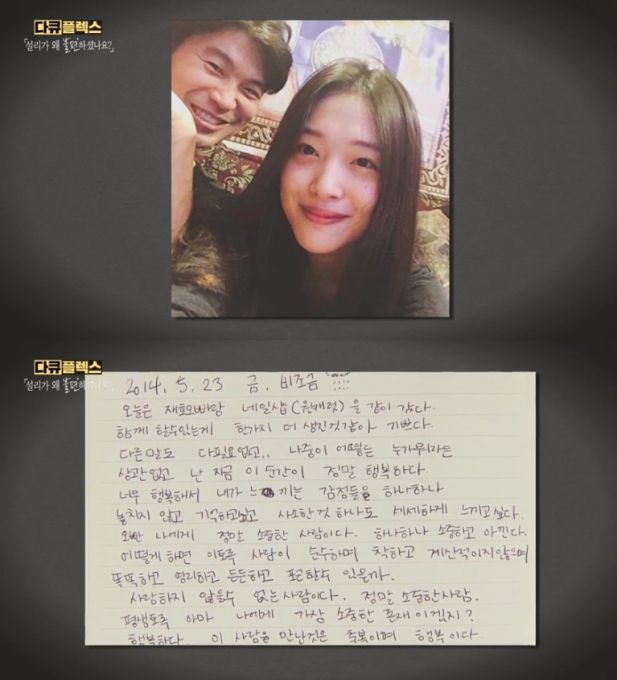 다큐플렉스
「설리가 왜 불편하셨나요?」
다큐플렉스
「설리가 왜 불편하셨나요?」
2014. 5. 23 금, 비조금
오늘은 재호오빠랑 네일샵(원캐럿)을 같이 갔다.
함께 할수있는게 한가지 더 생긴것같아 기쁘다.
다른말도 다필요없고.. 나중이 어떻든 누가뭐라든
상관없고 난 지금 이순간이 정말 행복하다.
너무 행복해서 내가 느끼는 감정들을 하나하나
놓치지 않고 기억하고싶고 사소한것 하나도 세세하게 느끼고싶다.
오빤 나에게 정말 소중한 사람이다. 하나하나 소중하고 아낀다.
어떻게 하면 이토록 사람이 순수하며 착하고 계산적이지않으며
똑똑하고 영리하고 든든하고 포근할수 있을까.
사랑하지 않을수 없는사람이다. 정말 소중한사람.
평생토록 아마 나에게 가장 소중한 존재이겠지?
행복하다. 이 사람을 만난것은 축복이며 행복이다.